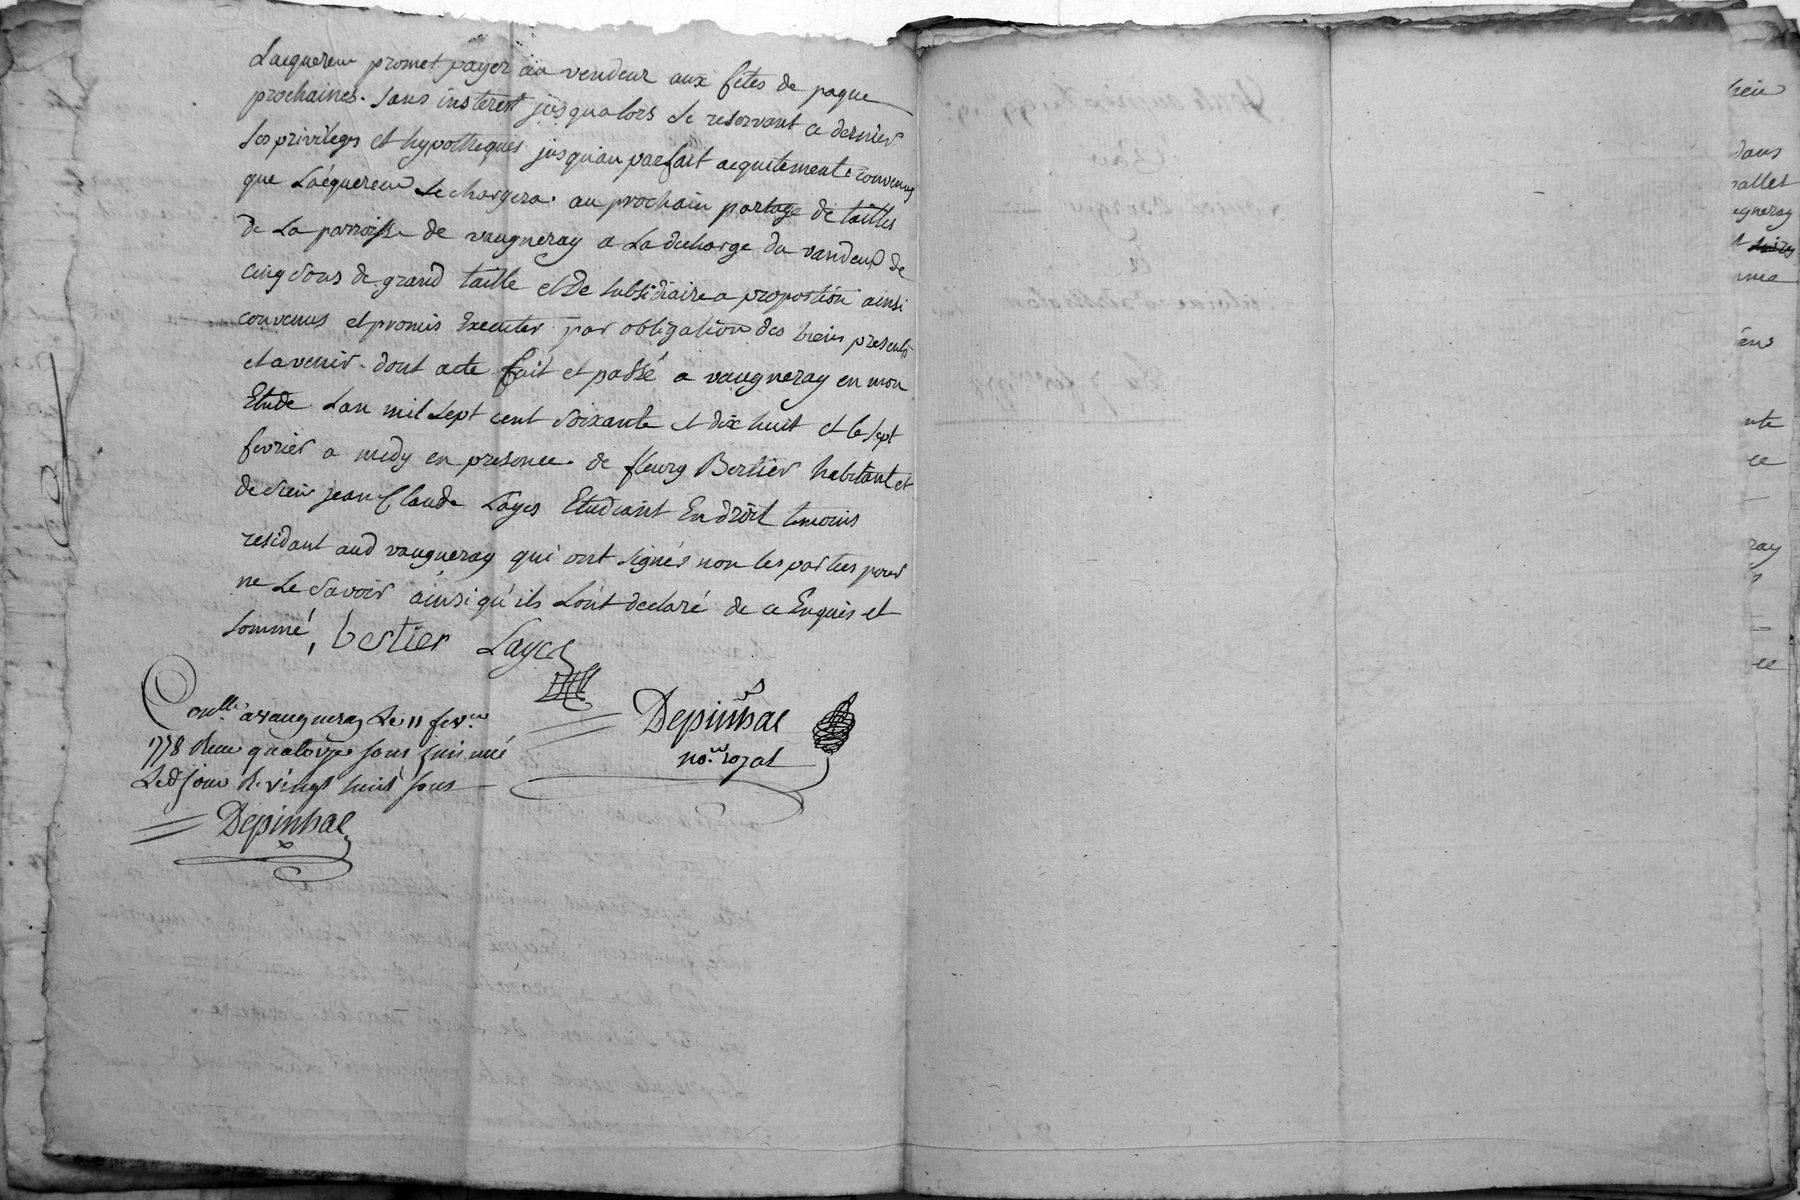 Lacquereur promet payer au vendeur aux fêtes de paque
prochaines. sans insterest jusqualors se reservant ce dernier
ses privileges et hypotheques jusquau parfait acquitement. convenus
que Lacquereur se chargera. au prochain partage de tailles
de La parroisse de vaugneray a La decharge du vandeur de
cinq sous de grand taille et de subsidiaire a proportion ainsi
convenus et promis Executer par obligation des biens presents
et avenir. dont acte fait et passé a vaugneray en mon
Etude Lan mil sept cent soixante et dix huit et le sept
fevrier a midy en presence. de fleury Bertier habitant et
de sieur jean Claude Layes Etudiant En droit temoins
residant aud vaugneray qui ont signés non les parties pour
ne Le savoir ainsi qu'ils Lont declaré de ce Enquis et
sommé,
bertier Layes
Depinhac
no.re royal
Conllé a vaugneray Le 11 fevr.er
1778 Reçu quatorze sous
Led jour R. vingt huit sous
Depinhac
dans
vallet
ray